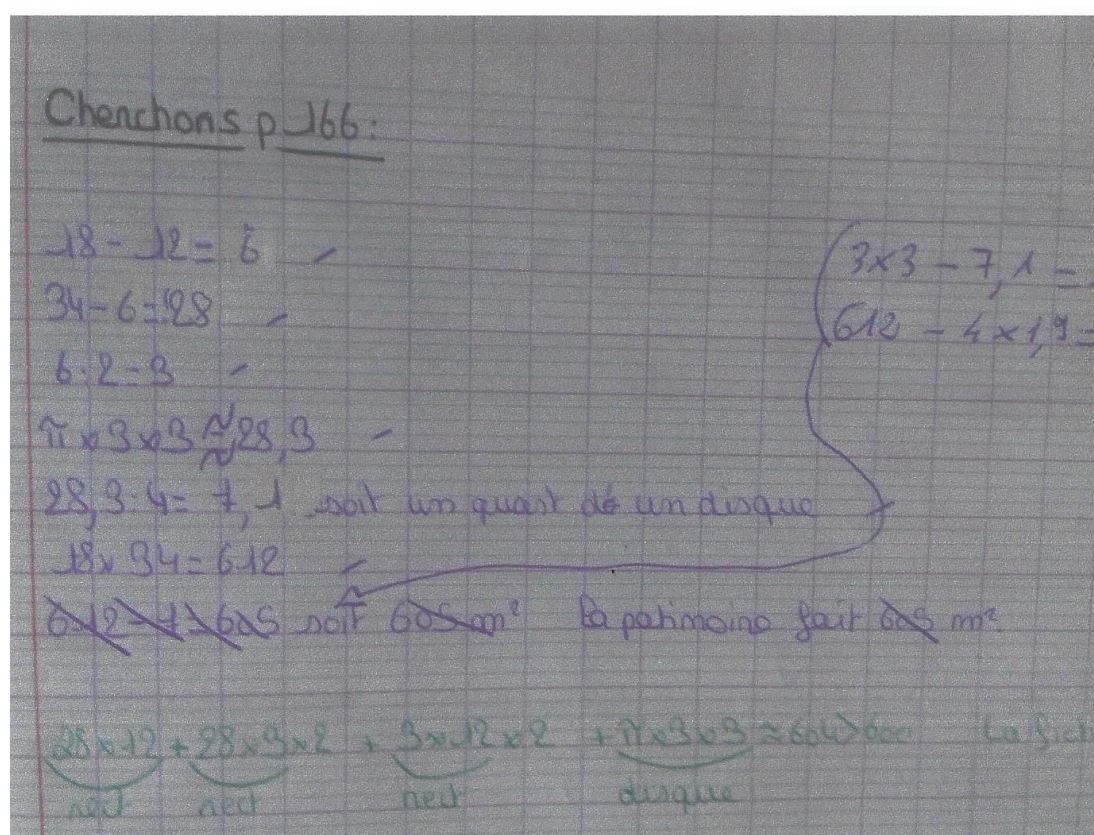 Cherchons p 166:
18 - 12 = 6
34 - 6 = 28
6 : 2 = 3
π × 3 × 3 ≈ 28,3
28,3 : 4 = 7,1 soit un quart de un disque
18 × 34 = 612
(3×3 - 7,1 =
612 - 4 × 1,9 =
612 - 7 = 605 soit 605 m² La patinoire fait 605 m²
28×12 + 28×3×2 + 3×12×2 + π×3×3 ≈ 604 > 600 La
rect rect rect disque